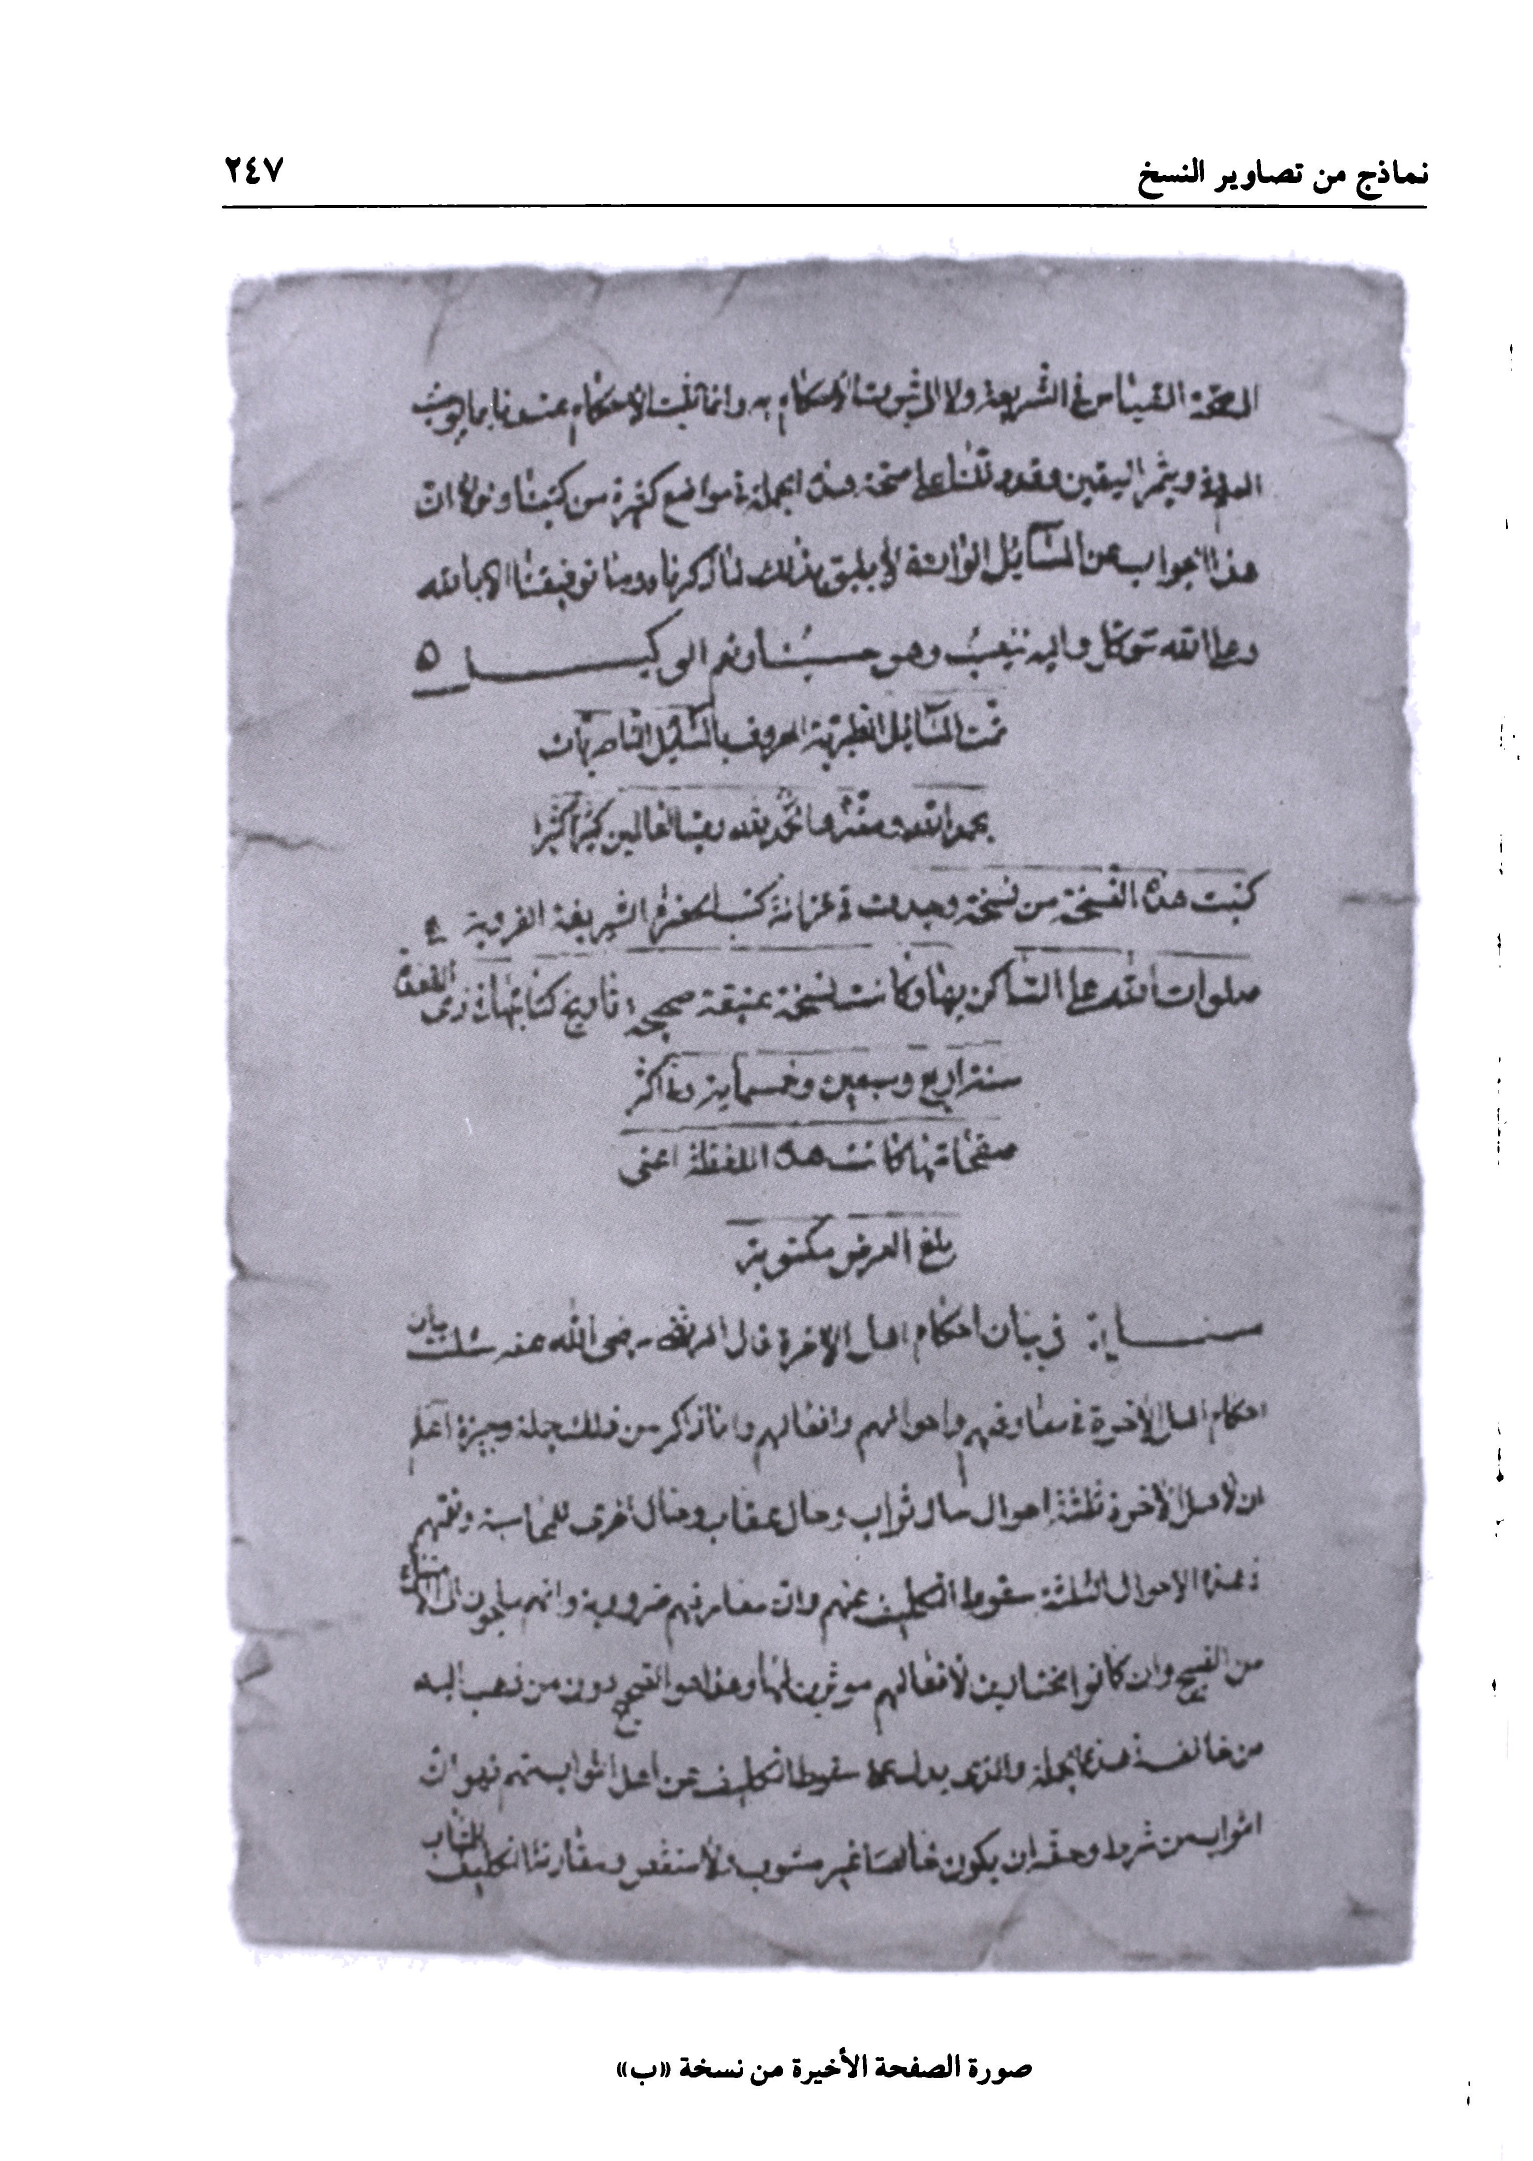 نماذج من تصاوير النسخ ٢٤٧
الى صحّة القياس في الشريعة ولا الى ثبوت الأحكام به وانما تثبت الأحكام عندنا بما يوجب
العلم ويثمر اليقين وقد دللنا على صحّة هذه الجملة في مواضع كثيرة من كتبنا ولولا ان
هذا الجواب عن المسائل الواردة لا يليق بذلك لذكرناه وما توفيقنا الا بالله
وعلى الله نتوكل واليه ننيب وهو حسبنا ونعم الوكيل
تمت المسائل الطبرية المعروف بالمسائل الناصريات
بحمد الله ومنّه والحمد لله رب العالمين كثيرا كثيرا
كتبت هذه النسخة من نسخة وجدت في خزانة كتب الحضرة الشريفة الغروية
صلوات الله على الساكن بها وكانت نسخة عتيقة صحيحة تاريخ كتابتها ذى القعدة
سنة اربع وسبعين وخمسماية وفي اكثر
صفحاتها كانت هذه اللفظة اعنى
بلغ العرض مكتوبة
مسئلة في بيان احكام اهل الآخرة قال المرتضى رضى الله عنه سئلت بيان
احكام اهل الآخرة في معارفهم واحوالهم وافعالهم وانا ذاكر من ذلك جملة وجيزة اعلم
ان لاهل الآخرة ثلثة احوال حال ثواب وحال عقاب وحال اخرى للمحاسبة ويعمهم
في هذه الاحوال الثلثة سقوط التكليف عنهم وان معارفهم ضرورية وانهم ملجؤن الى الامتناع
من القبيح وان كانوا مختارين لأفعالهم موثرين لها وهذا هو الصحيح دون من ذهب اليه
من خالف هذه الجملة والذى يدل على سقوط التكليف عن اهل الثواب منهم فهو ان
الثواب من شرطه وحقه ان يكون خالصا غير مشوب ولا منغص ومقارنة التكليف للثواب
صورة الصفحة الأخيرة من نسخة «ب»